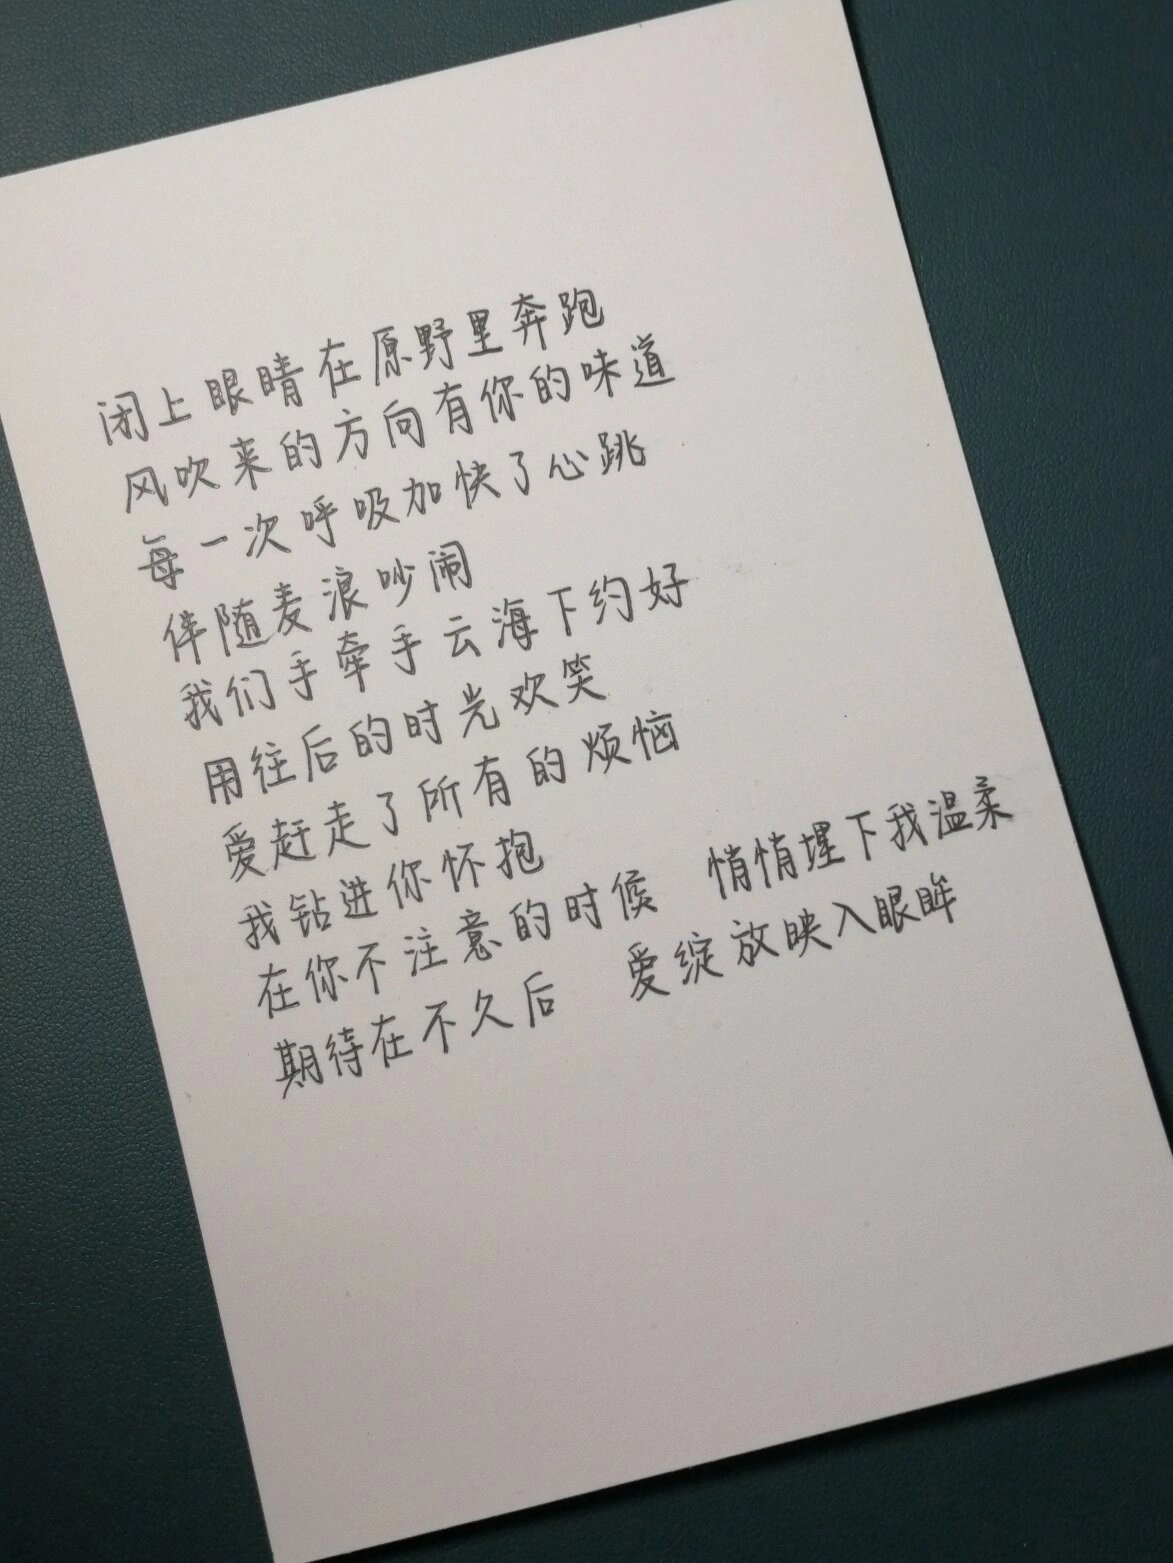 闭上眼睛在原野里奔跑
风吹来的方向有你的味道
每一次呼吸加快了心跳
伴随麦浪吵闹
我们手牵手云海下约好
用往后的时光欢笑
爱赶走了所有的烦恼
我钻进你怀抱
在你不注意的时候 悄悄埋下我温柔
期待在不久后 爱绽放映入眼眸